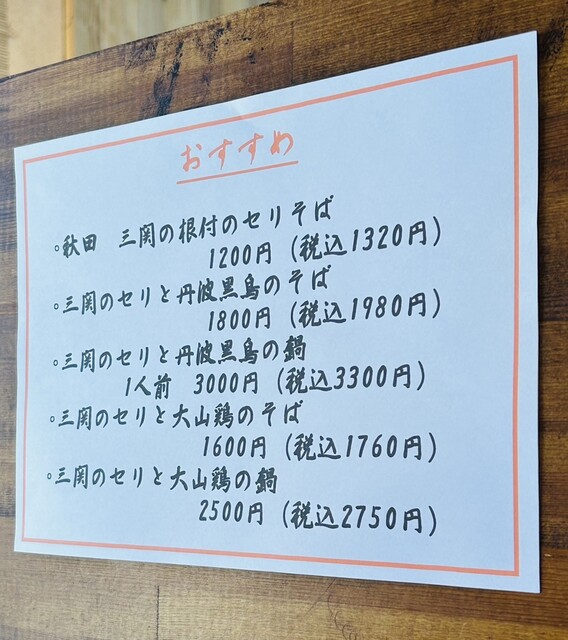 おすすめ
◦秋田　三関の根付のセリそば
1200円（税込1320円）
◦三関のセリと丹波黒鳥のそば
1800円（税込1980円）
◦三関のセリと丹波黒鳥の鍋
1人前　3000円（税込3300円）
◦三関のセリと大山鶏のそば
1600円（税込1760円）
◦三関のセリと大山鶏の鍋
2500円（税込2750円）